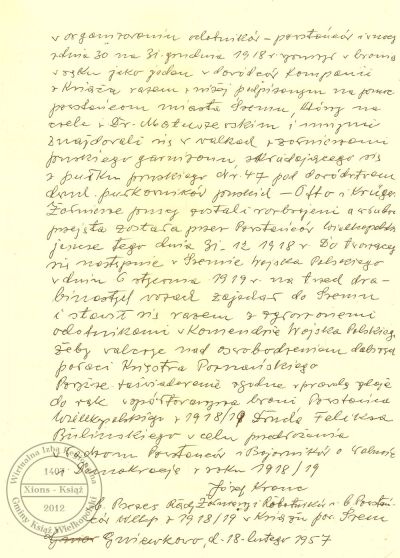 w organizowaniu ochotników - powstańców i w nocy
z dnia 30 na 31. grudnia 1918 r. z bronią
w ręku jako jeden z dowódców Kompanii
z Książa razem z niżej podpisanym na pomoc
powstańcom miasta Śremu, którzy na
czele z Dr. Matuszewskim i innymi
znajdowali się w walkach z żołnierzami
pruskiego garnizonu, składającego się
z pułku pruskiego nr. 47 pod dowództwem
pułkowników pruskich - Otto i Krüger.
Żołnierze pruscy zostali rozbrojeni a
przejęta została przez Powstańców Wielkopolskich
jeszcze tego dnia 31-12 1918 r. Do tworzącego
się następnie w Śremie Wojska Polskiego
w dniu 6 stycznia 1919 r. na trzech dra-
biniastych wozach zajechał do Śremu
i stawił się razem z
ochotnikami w Komendzie Wojska Polskiego
żeby walczyć nad oswobodzeniem dalszych
połaci Księstwa Poznańskiego
Powyższe zaświadczenie zgodne z prawdą
do rąk współtowarzysza broni Powstania
Wielkopolskiego z 1918/19 Druha Feliksa
Bulińskiego w celu przedłożenia
Władzom Powstańców i Bojowników o Wolność
i Demokrację z roku 1918/19
Józef Kranc
b. Prezes Rady Żołnierzy i Robotników i b. Powsta-
ńców Wlkp z 1918/19 w Książu pow. Śrem
Gniewkowo, d. 18-lutego 1957
Wirtualna Izba Regionalna
1407
Xions - Książ
2012
Gminy Książ Wielkopolski